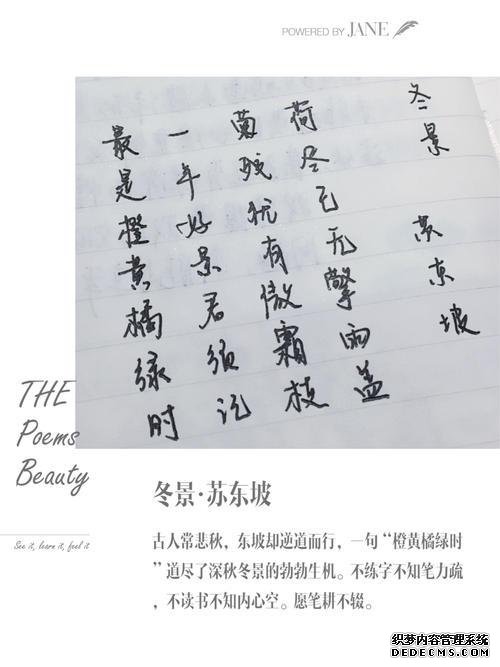 POWERED BY JANE
冬景 苏东坡
荷尽已无擎雨盖
菊残犹有傲霜枝
一年好景君须记
最是橙黄橘绿时
THE
Poems
Beauty
See it, learn it, feel it
冬景·苏东坡
古人常悲秋，东坡却逆道而行，一句“橙黄橘绿时
”道尽了深秋冬景的勃勃生机。不练字不知笔力疏
，不读书不知内心空。愿笔耕不辍。
织梦内容管理系统
DEDECMS.COM